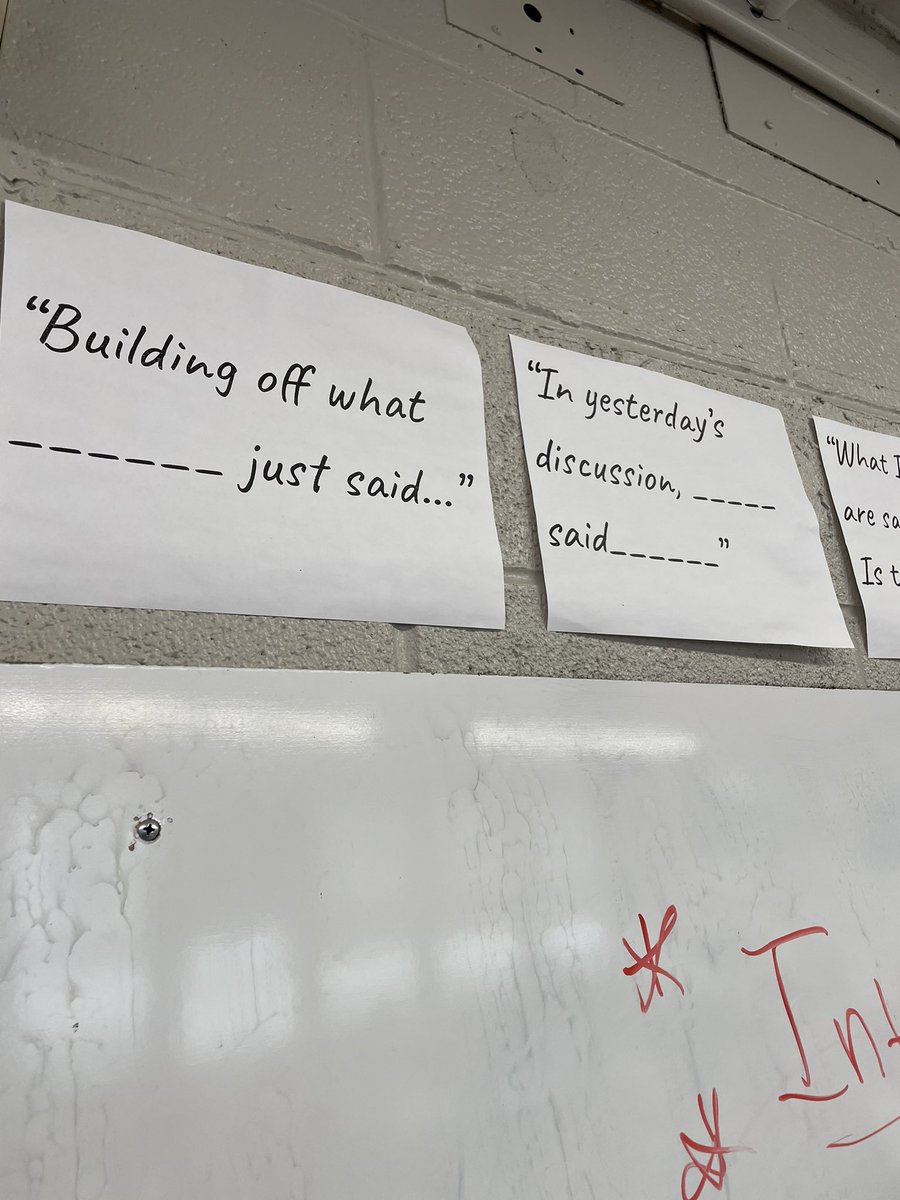 “Building off what
______ just said...”
“In yesterday's
discussion, _____
said______”
“What I
are
Is
*
Int
*